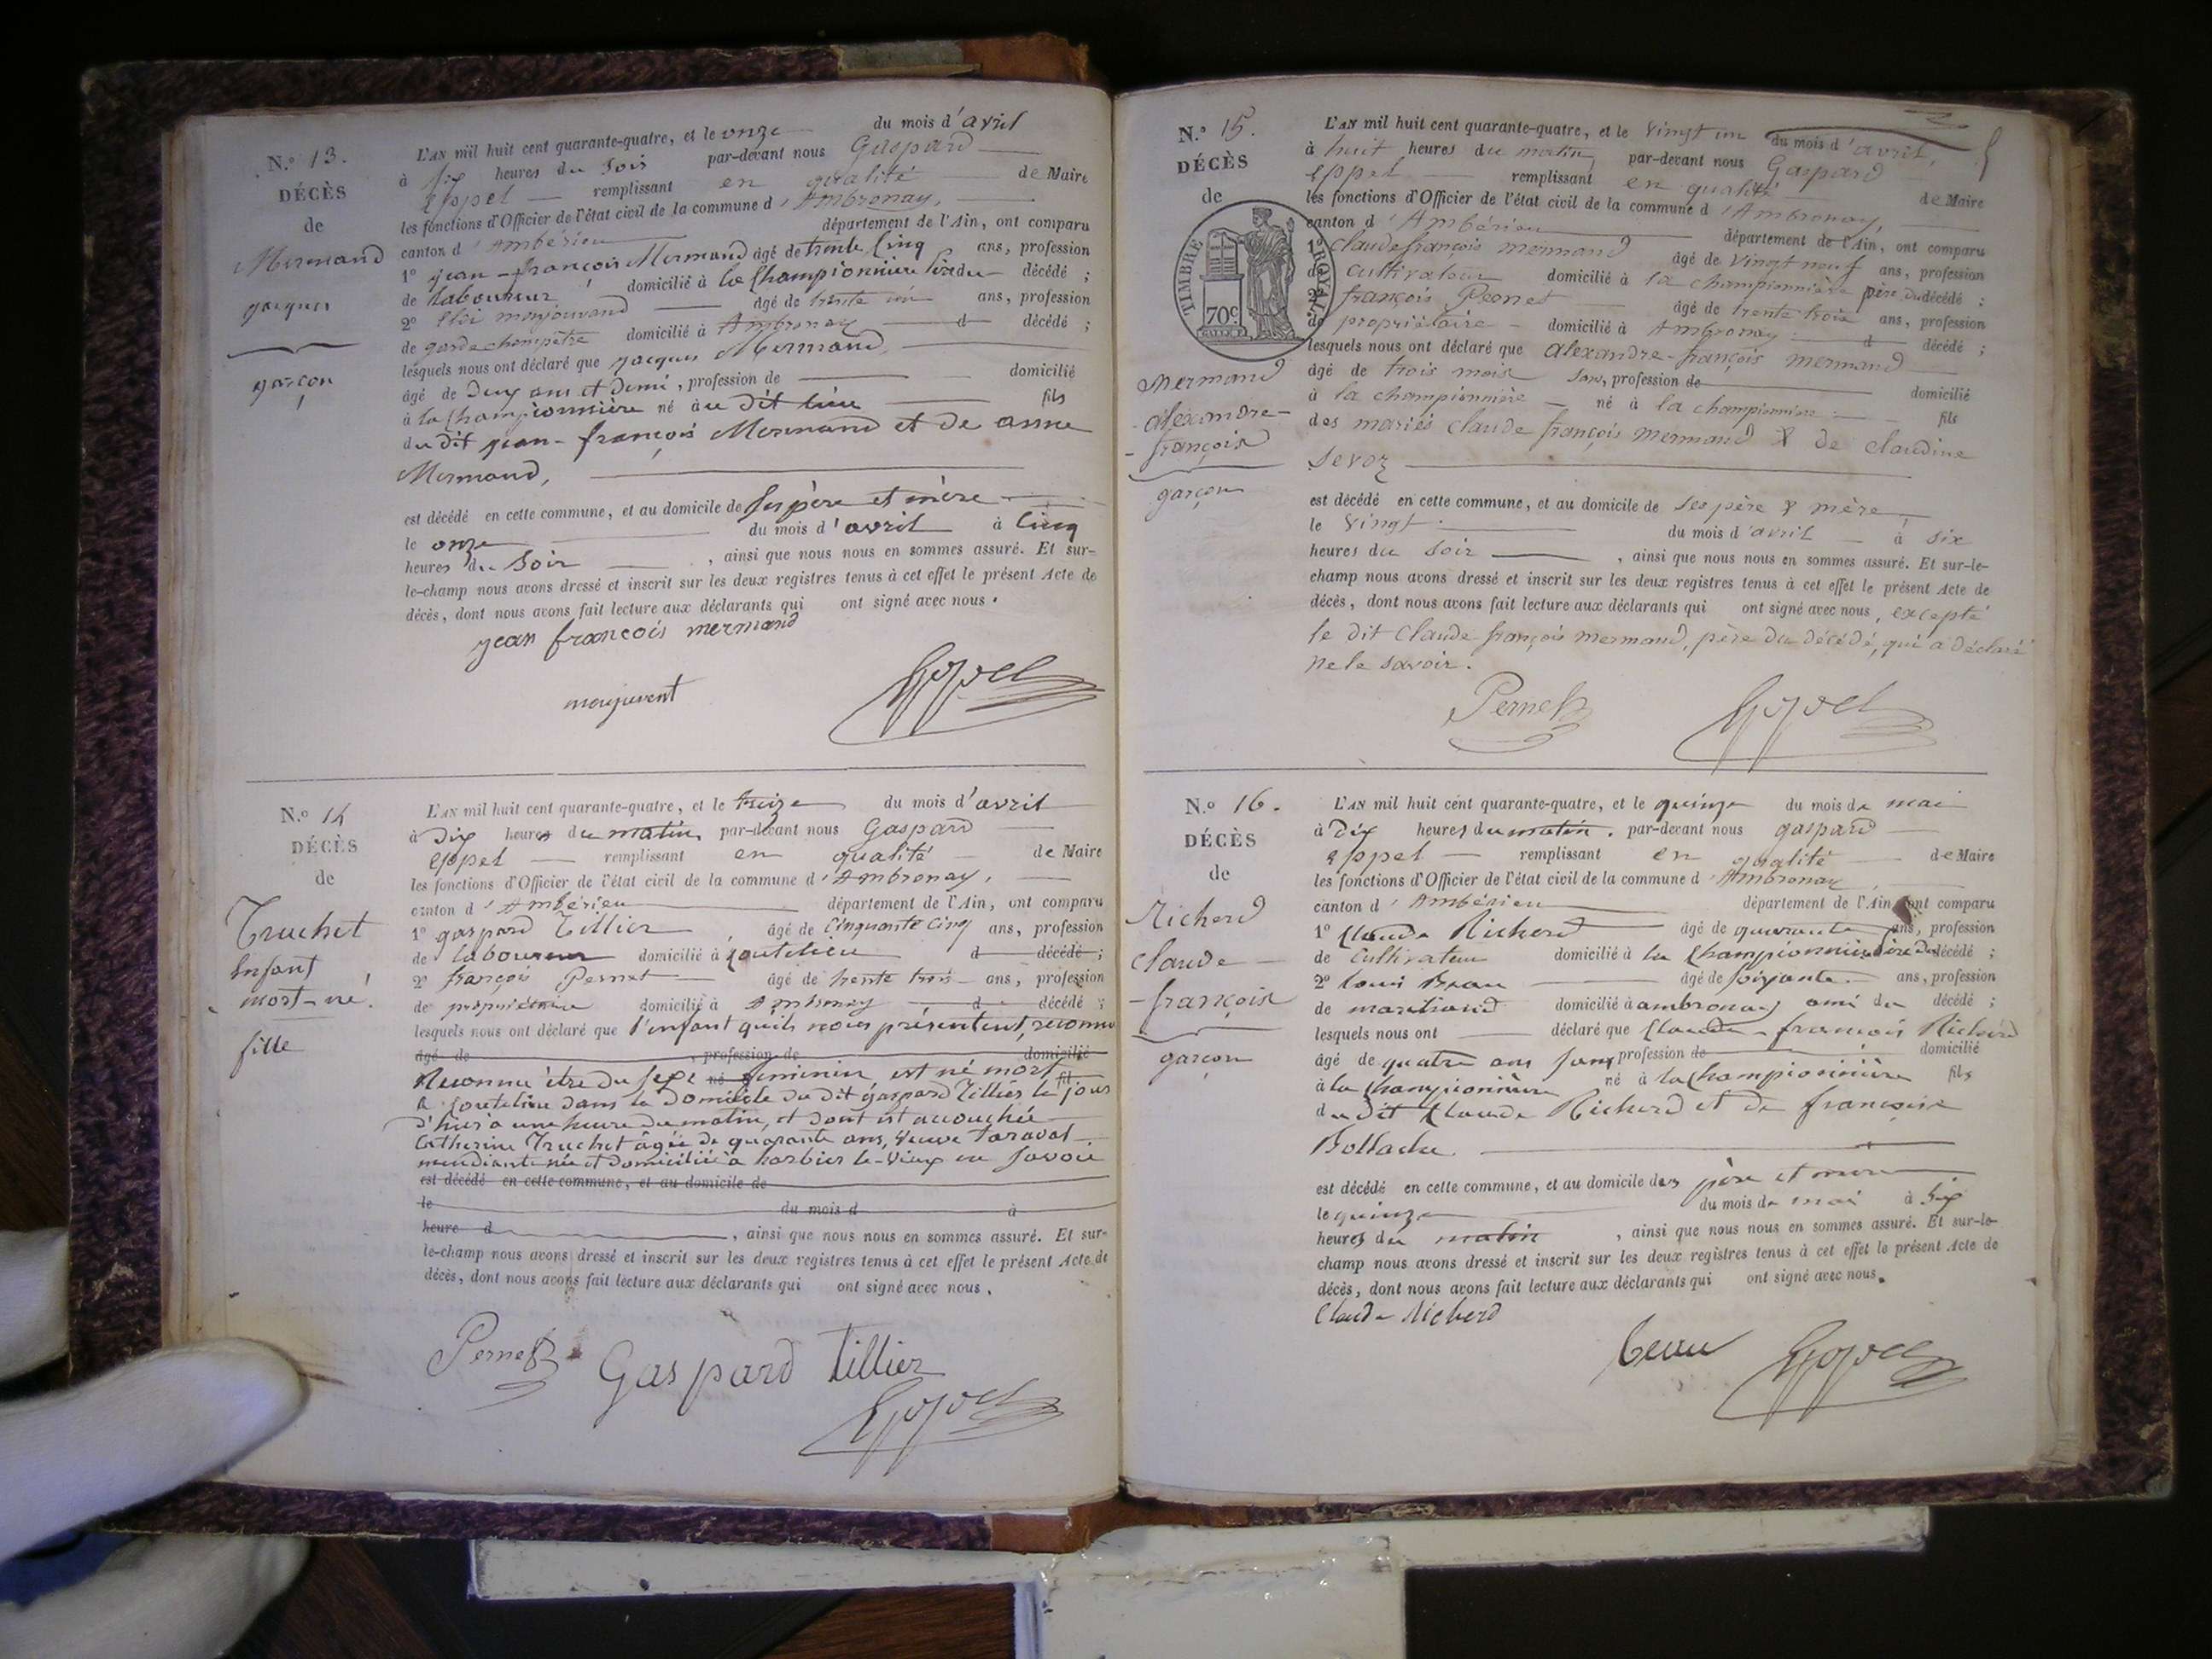 N.° 13.
DÉCÈS
de
Mermand
jacques
garçon
L'AN mil huit cent quarante-quatre, et le onze du mois d'avril
à six heures du soir par-devant nous Gaspard
Eppel remplissant en qualité de Maire
les fonctions d'Officier de l'état civil de la commune d'Ambronay,
canton d'Ambérieu département de l'Ain, ont comparu
1° jean-françois Mermand âgé de trente cinq ans, profession
de laboureur, domicilié à la Championnière père du décédé ;
2° âgé de trente ans, profession
de garde champêtre domicilié à Ambronay d décédé ;
lesquels nous ont déclaré que jacques Mermand
âgé de deux ans et demi, profession de domicilié
à la Championnière né au dit lieu fils
du dit jean-françois Mermand et de anne
Mermand,
est décédé en cette commune, et au domicile de ses père et mère
le onze du mois d'avril à cinq
heures du soir , ainsi que nous nous en sommes assuré. Et sur-
le-champ nous avons dressé et inscrit sur les deux registres tenus à cet effet le présent Acte de
décès, dont nous avons fait lecture aux déclarants qui ont signé avec nous.
jean francois mermand
monjuvent
N.° 14
DÉCÈS
de
Truchet
Enfant
mort-né.
fille
L'AN mil huit cent quarante-quatre, et le treize du mois d'avril
à dix heures du matin, par-devant nous Gaspard
Eppel remplissant en qualité de Maire
les fonctions d'Officier de l'état civil de la commune d'Ambronay,
canton d'Ambérieu département de l'Ain, ont comparu
1° gaspard Tillier, âgé de cinquante cinq ans, profession
de laboureur domicilié à d décédé ;
2° françois Pernet âgé de trente trois ans, profession
de propriétaire domicilié à Ambronay d décédé ;
lesquels nous ont déclaré que l'enfant qu'ils nous présentent, reconnu
âgé de , profession de domicilié
Reconnu être du sexe né féminin, est né mort fil
à dans le domicile du dit gaspard Tillier le jour
d'hier à une heure du matin, et dont est accouchée
Catherine Truchet âgée de quarante ans, veuve
mendiante née et domiciliée à le-vieux en Savoie
est décédé en cette commune, et au domicile de
le du mois d à
heure d , ainsi que nous nous en sommes assuré. Et sur-
le-champ nous avons dressé et inscrit sur les deux registres tenus à cet effet le présent Acte de
décès, dont nous avons fait lecture aux déclarants qui ont signé avec nous.
Pernet Gaspard tillier
Eppel
N.° 15.
DÉCÈS
de
TIMBRE ROYAL
70c
Mermand
alexandre-
françois
garçon
L'AN mil huit cent quarante-quatre, et le vingt un du mois d'avril,
à huit heures du matin, par-devant nous Gaspard
Eppel remplissant en qualité de Maire
les fonctions d'Officier de l'état civil de la commune d'Ambronay,
canton d'Ambérieu département de l'Ain, ont comparu
1° Claude françois mermand âgé de vingt neuf ans, profession
de cultivateur domicilié à la championnière père du décédé ;
2° françois Pernet âgé de trente trois ans, profession
de propriétaire domicilié à Ambronay d décédé ;
lesquels nous ont déclaré que alexandre-françois mermand
âgé de trois mois sans, profession de domicilié
à la championnière né à la championnière fils
des mariés claude françois mermand & de claudine
Sevoz
est décédé en cette commune, et au domicile de ses père & mère
le vingt du mois d'avril à six
heures du soir , ainsi que nous nous en sommes assuré. Et sur-le-
champ nous avons dressé et inscrit sur les deux registres tenus à cet effet le présent Acte de
décès, dont nous avons fait lecture aux déclarants qui ont signé avec nous, excepté
le dit claude françois mermand, père du décédé, qui a déclaré
ne le savoir.
Pernet Eppel
N.° 16.
DÉCÈS
de
Richerd
claude-
françois
garçon
L'AN mil huit cent quarante-quatre, et le quinze du mois de mai
à dix heures du matin, par-devant nous gaspard
Eppel remplissant en qualité de Maire
les fonctions d'Officier de l'état civil de la commune d'Ambronay
canton d'Ambérieu département de l'Ain, ont comparu
1° Claude Richerd âgé de quarante ans, profession
de cultivateur domicilié à la Championnière père du décédé ;
2° louis Beau âgé de soixante ans, profession
de marchand domicilié à ambronay ami du décédé ;
lesquels nous ont déclaré que Claude-françois Richerd
âgé de quatre ans sans profession de domicilié
à la Championnière né à la Championnière fils
du dit Claude Richerd et de françoise
est décédé en cette commune, et au domicile des père et mère
le quinze du mois de mai à six
heures du matin , ainsi que nous nous en sommes assuré. Et sur-le-
champ nous avons dressé et inscrit sur les deux registres tenus à cet effet le présent Acte de
décès, dont nous avons fait lecture aux déclarants qui ont signé avec nous.
Claude Richerd
beau Eppel